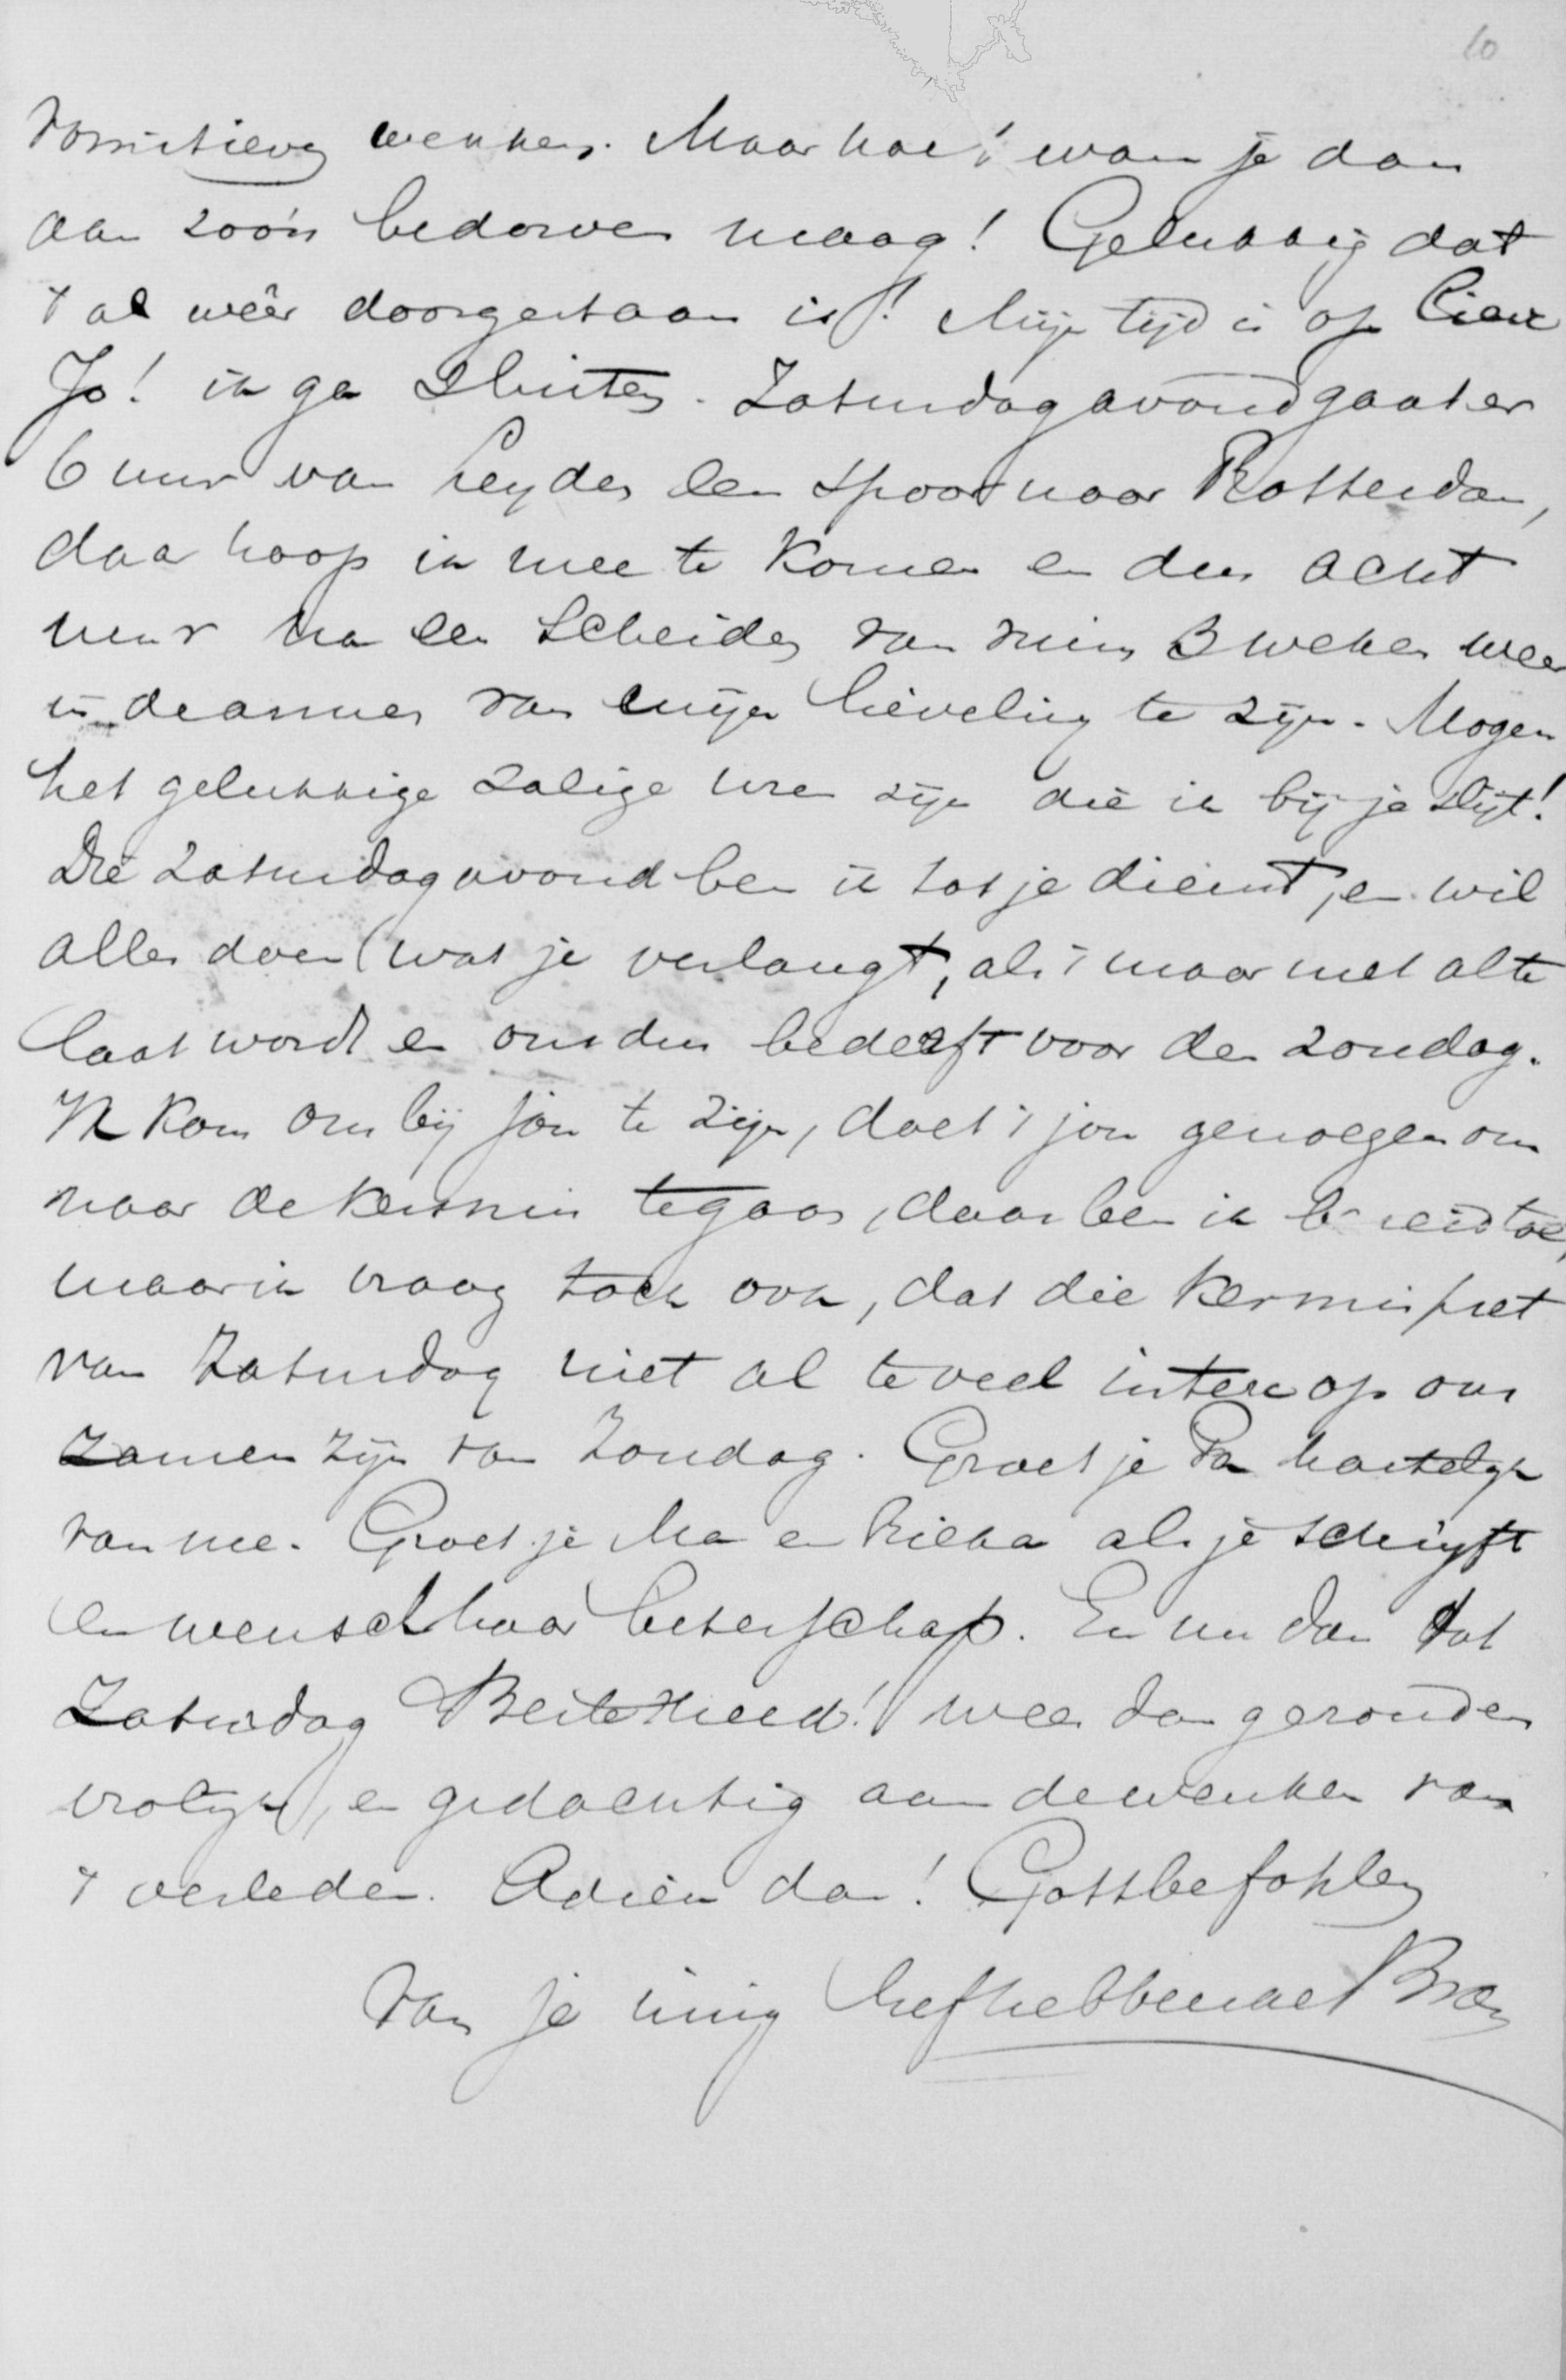 10
vomitieven wenken. Maar hoe! kwam je dan
aan zoo'n bedorven maag! Gelukkig dat
't al wêer doorgestaan is! Mijn tijd is op lieve
Jo! ik ga sluiten. Zaturdag avond gaat er
6 uur van Leyden een spoor naar Rotterdam,
daar hoop ik mee te komen en dus acht
uur na een scheiden van ruim 3 weken weer
in de armen van mijn lieveling te zijn. Mogen
het gelukkige zalige uren zijn die ik bij je slijt!
Die Zaturdag avond ben ik tot je dienst, en wil
alles doen wat je verlangt, als 't maar niet al te
laat wordt en ons dus bederft voor den Zondag.
Ik kom om bij jou te zijn, doet 't jou genoegen om
naar de kermis te gaan, daar ben ik bereid toe,
maar ik vraag toch ook, dat die kermispret
van Zaturdag niet al te veel intere op ons
zamen zijn van Zondag. Groet je Pa hartelijk
van me. Groet je Ma en Rieka als je schrijft
en wensch haar beterschap. En nu dan tot
Zaturdag Beste meid! wees dan gezond en
vrolijk, en gedachtig aan de wenken van
't verleden. Adieu dan! Gottbefohlen
Van je innig liefhebbende Bram